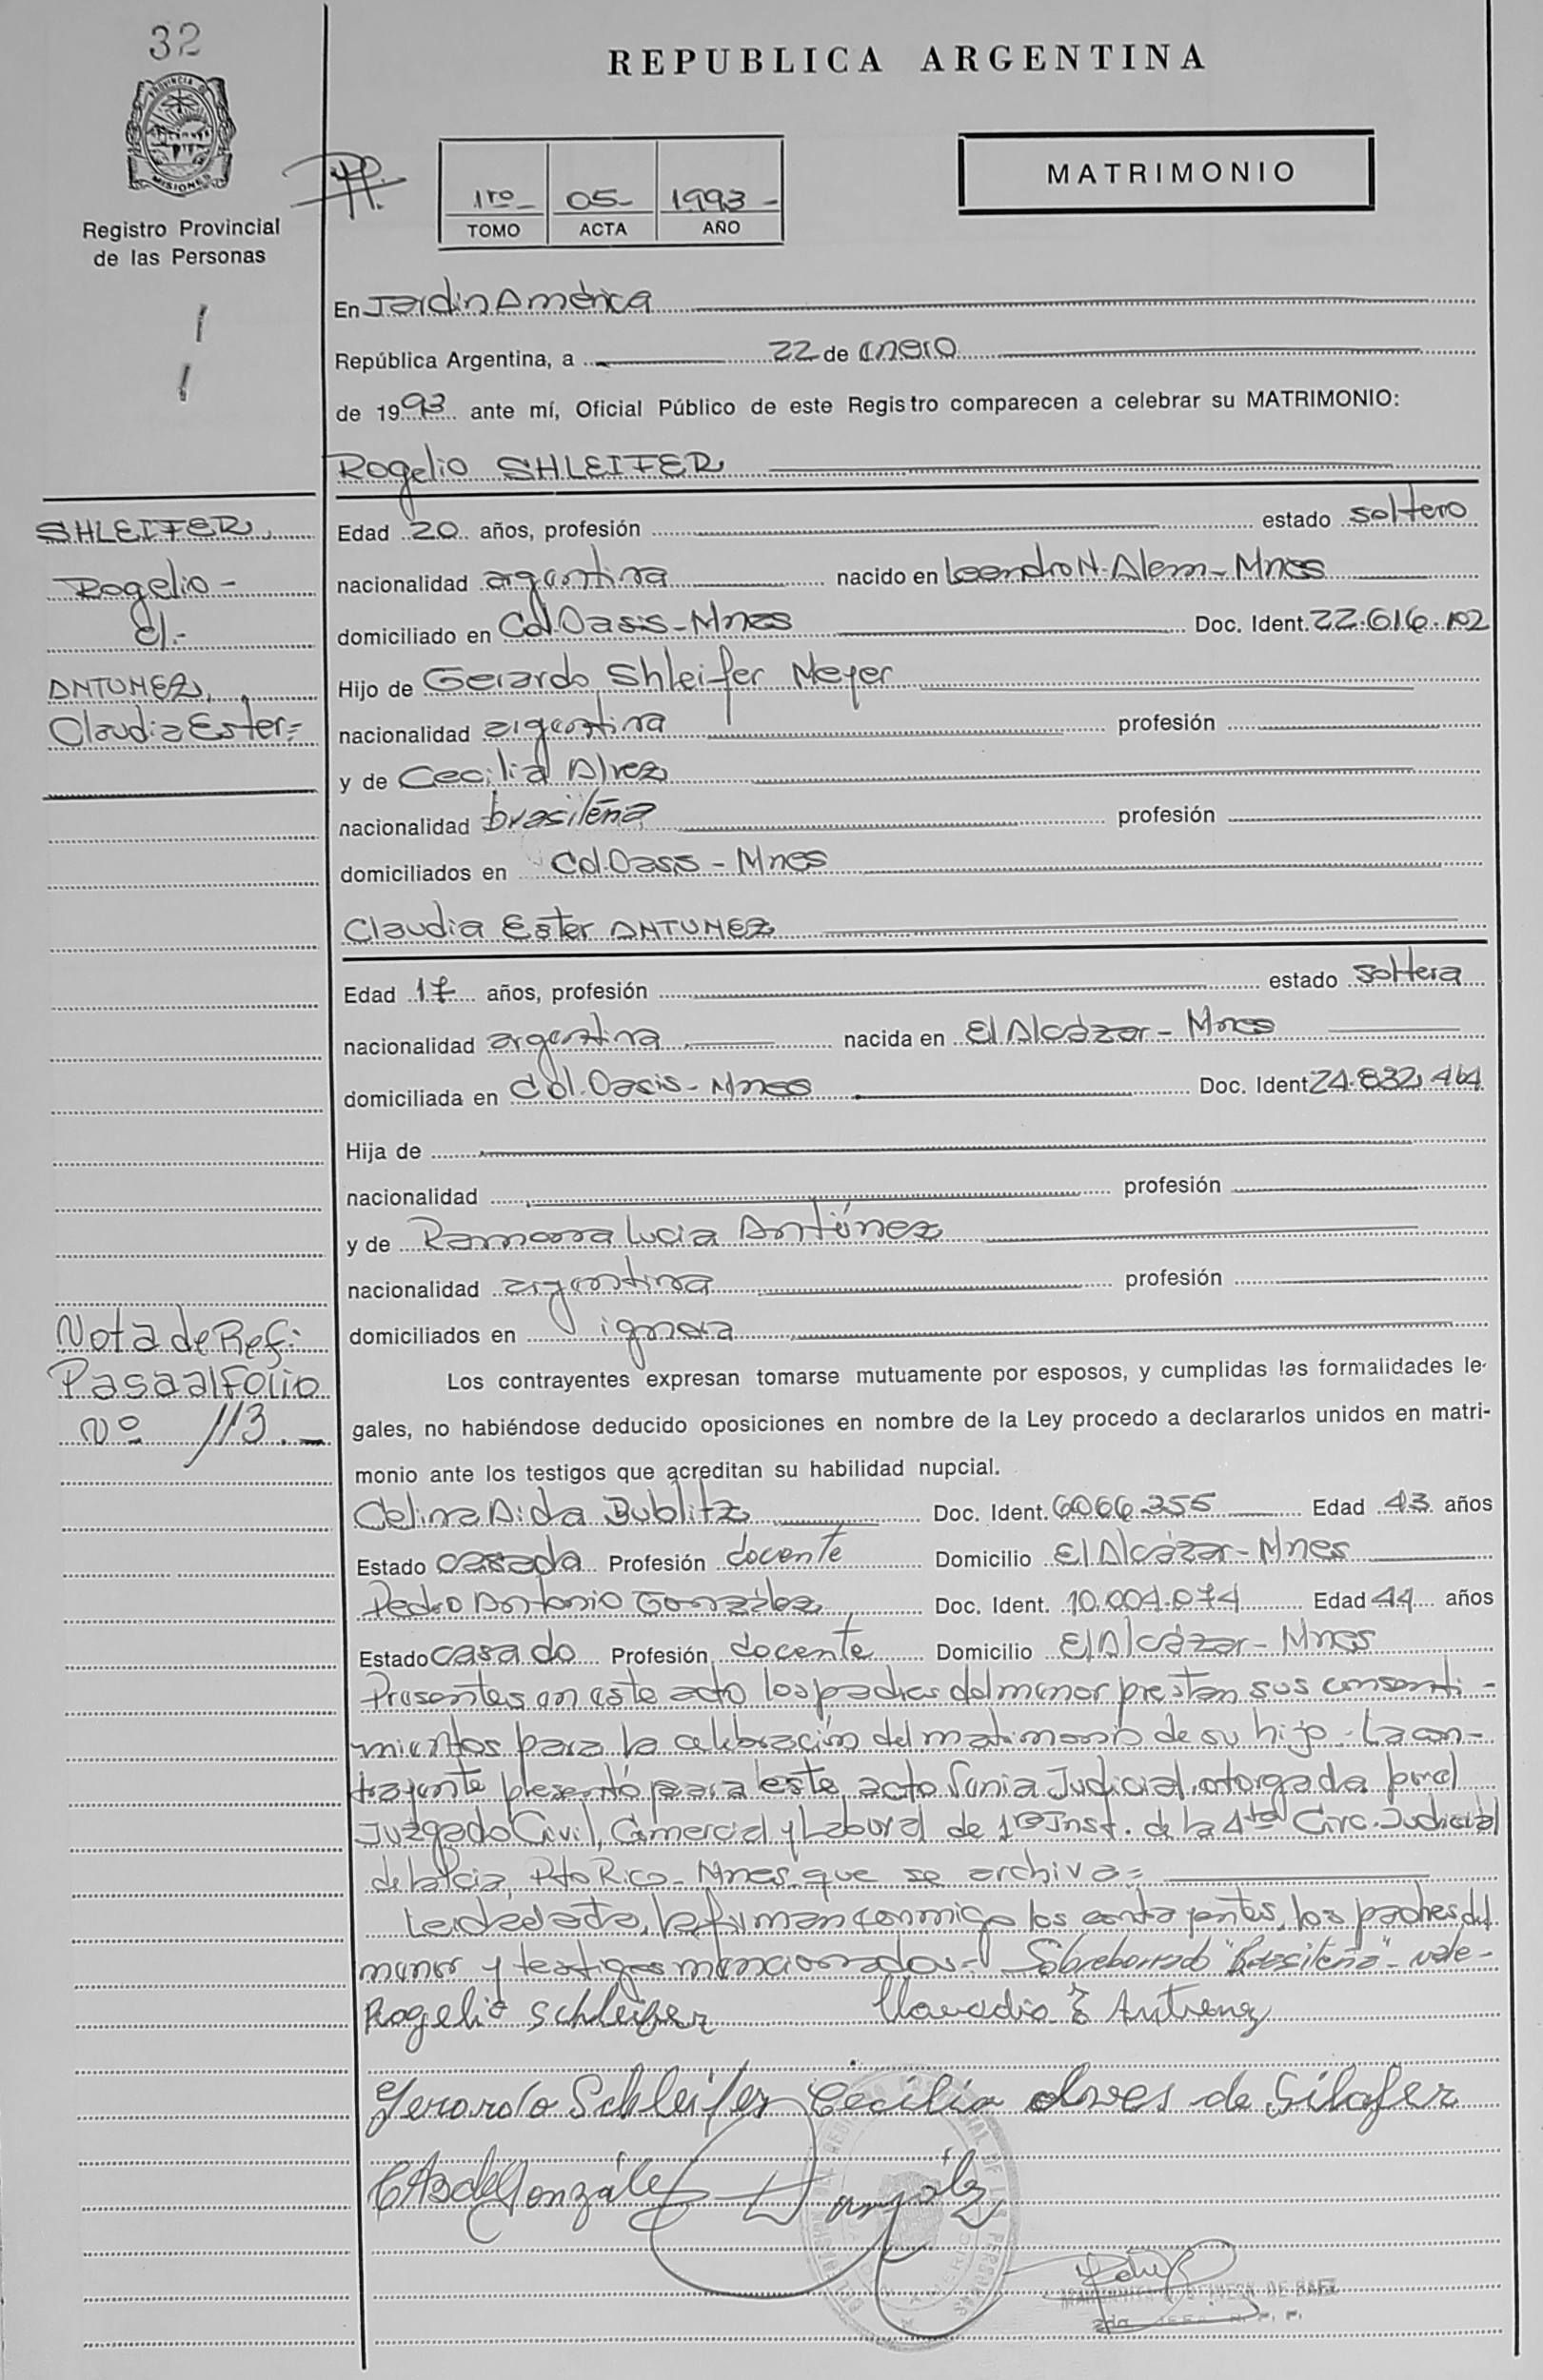 32
REPUBLICA ARGENTINA
PROVINCIA DE
MISIONES
Registro Provincial
de las Personas
1ro- 05- 1993-
TOMO ACTA AÑO
MATRIMONIO
En Jardin América
República Argentina, a 22 de enero
de 1993 ante mí, Oficial Público de este Registro comparecen a celebrar su MATRIMONIO:
Rogelio SHLEIFER
SHLEIFER
Rogelio-
c/.-
ANTUNEZ,
Claudia Ester=
Edad 20 años, profesión estado soltero
nacionalidad argentina nacido en Leandro N. Alem-Mnes
domiciliado en Col.Oasis-Mnes Doc. Ident. 22.616.102
Hijo de Gerardo Shleifer Meyer
nacionalidad argentina profesión
y de Cecilia Alvez
nacionalidad brasileña profesión
domiciliados en Col.Oasis-Mnes
Claudia Ester ANTUNEZ
Edad 17 años, profesión estado soltera
nacionalidad argentina nacida en El Alcázar-Mnes
domiciliada en Col.Oasis-Mnes Doc. Ident 24.832.464
Hija de
nacionalidad profesión
y de Ramona Lucia Antúnez
nacionalidad argentina profesión
domiciliados en ignora
Nota de Ref:
Pasa al Folio
Nº 113.-
Los contrayentes expresan tomarse mutuamente por esposos, y cumplidas las formalidades le-
gales, no habiéndose deducido oposiciones en nombre de la Ley procedo a declararlos unidos en matri-
monio ante los testigos que acreditan su habilidad nupcial.
Celina Aida Bublitz Doc. Ident. 6066.355 Edad 43 años
Estado casada Profesión docente Domicilio El Alcázar-Mnes
Pedro Antonio González Doc. Ident. 10.004.074 Edad 44 años
Estado casado Profesión docente Domicilio El Alcázar-Mnes
Presentes en este acto los padres del menor prestan sus consenti-
mientos para la celebración del matrimonio de su hijo-La con-
trayente presentó para este acto Venia Judicial otorgada por el
Juzgado Civil, Comercial y Laboral de 1ra Inst. de la 4ta Circ. Judicial
de la Pcia, Pto Rico-Mnes que se archiva=
Leida el acta, la firman conmigo los contrayentes, los padres del
menor y testigos mencionados- Sobreborrado "Brasileña"-vale-
Rogelio Schleifer Claudia E Antunez
Gerardo Schleifer Cecilia Alves de Silafer
CABdeGonzález González
DE BAEZ
2da JEFA R. P. P.